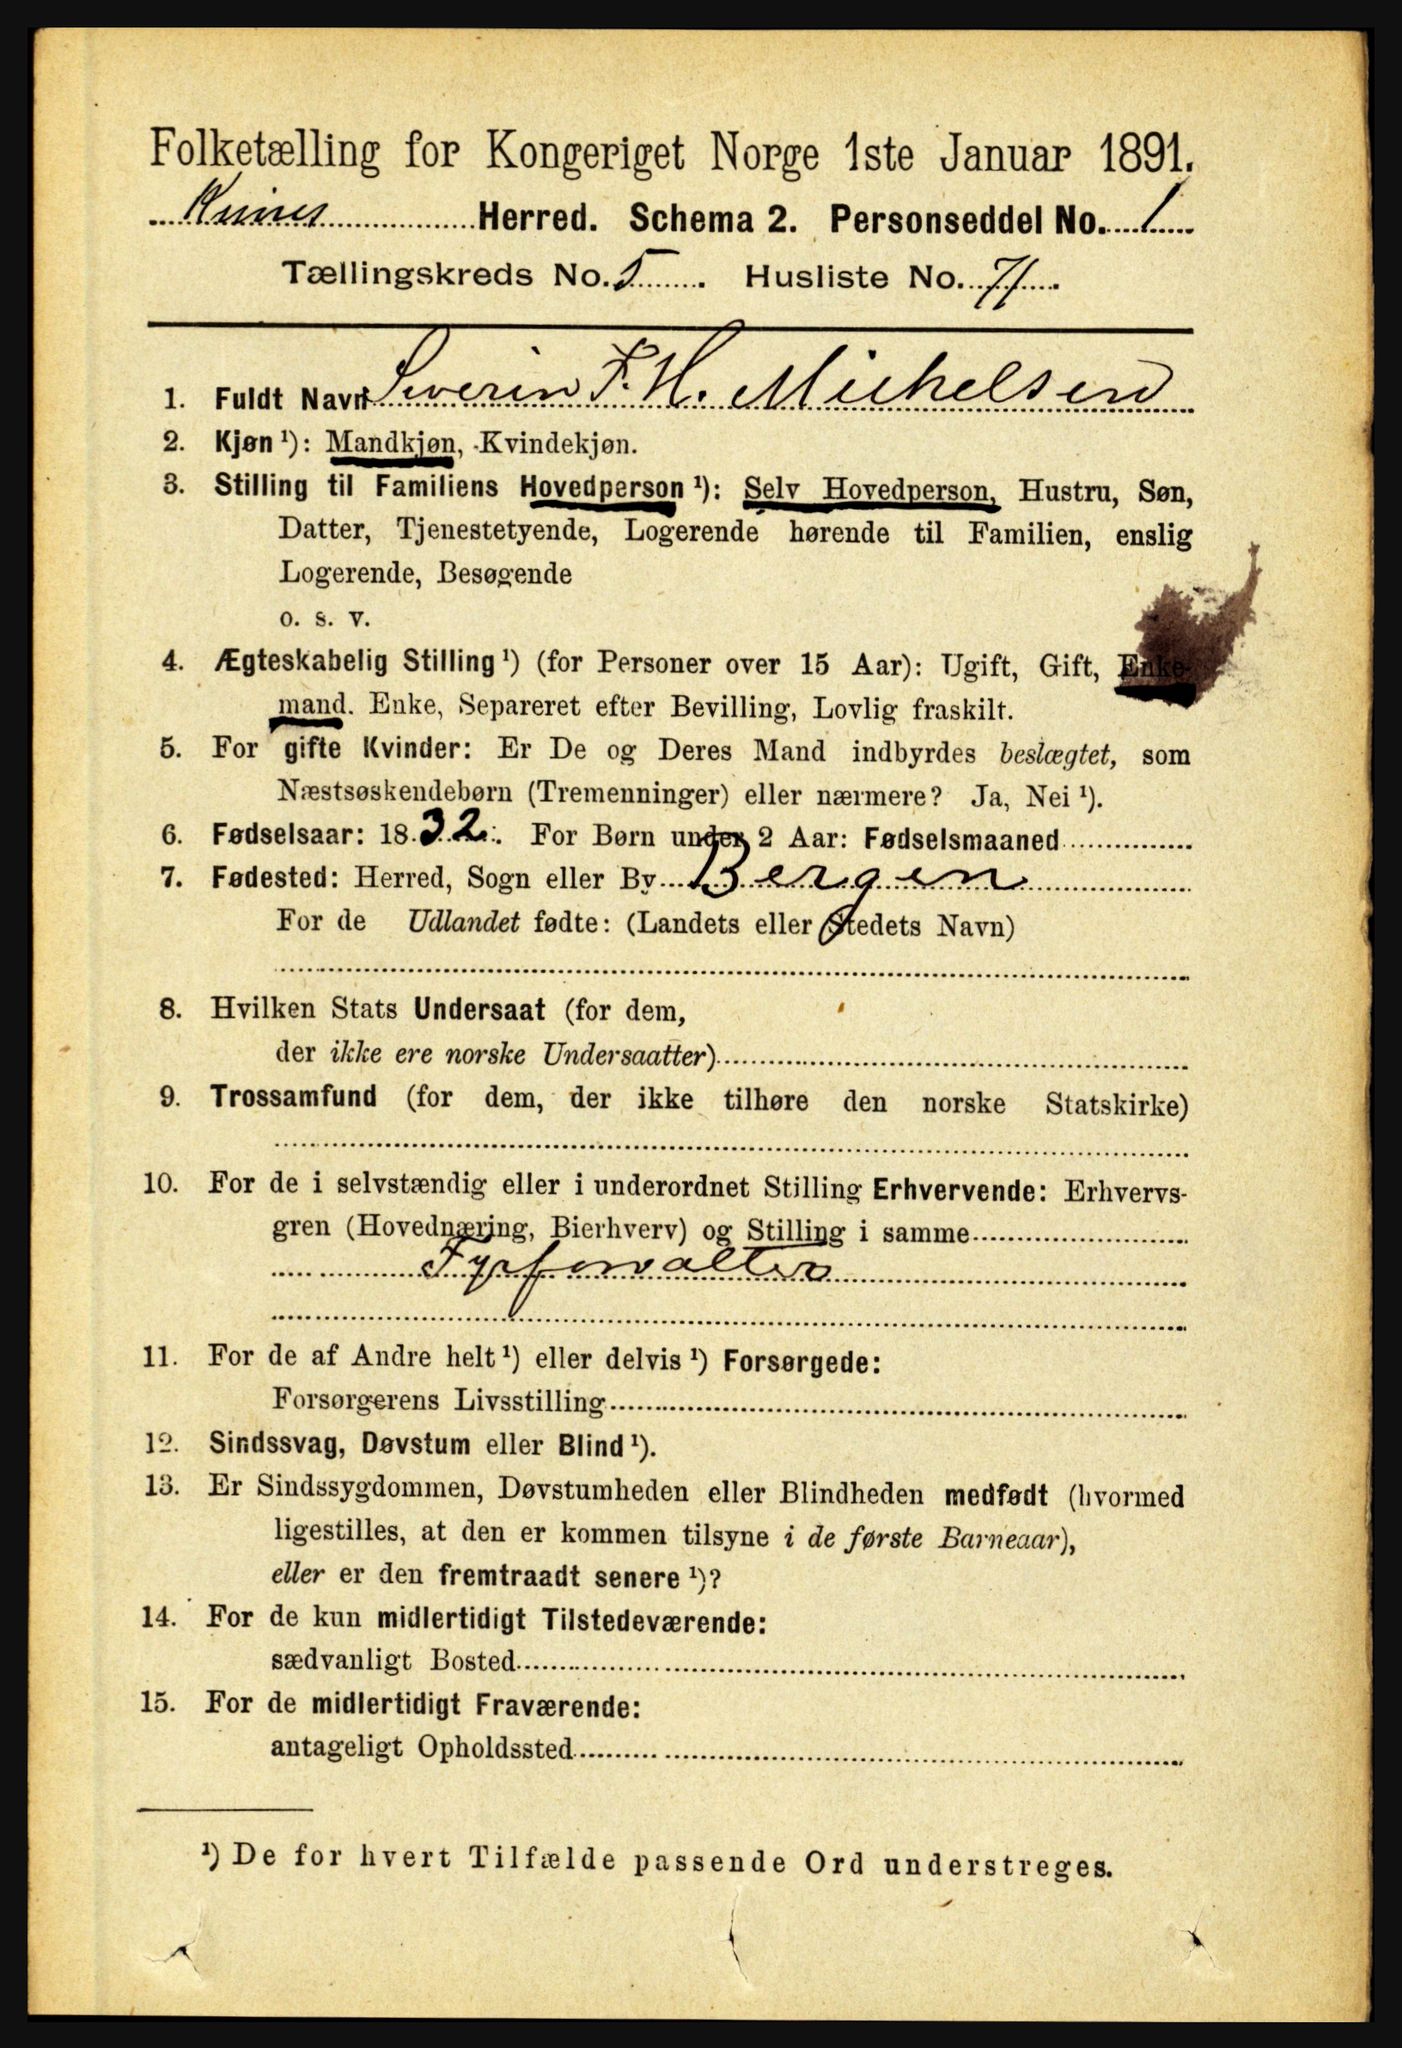 Folketælling for Kongeriget Norge 1ste Januar 1891.
Kinns Herred. Schema 2. Personseddel No. 1
Tællingskreds No. 5. Husliste No. 71.
1. Fuldt Navn Severin F. H. Michelsen
2. Kjøn ¹): Mandkjøn, Kvindekjøn.
3. Stilling til Familiens Hovedperson ¹): Selv Hovedperson, Hustru, Søn,
Datter, Tjenestetyende, Logerende hørende til Familien, enslig
Logerende, Besøgende
o. s. v.
4. Ægteskabelig Stilling ¹) (for Personer over 15 Aar): Ugift, Gift, Enke-
mand. Enke, Separeret efter Bevilling, Lovlig fraskilt.
5. For gifte Kvinder: Er De og Deres Mand indbyrdes beslægtet, som
Næstsøskendebørn (Tremenninger) eller nærmere? Ja, Nei ¹).
6. Fødselsaar: 1832. For Børn under 2 Aar: Fødselsmaaned
7. Fødested: Herred, Sogn eller By Bergen
For de Udlandet fødte: (Landets eller Stedets Navn)
8. Hvilken Stats Undersaat (for dem,
der ikke ere norske Undersaatter)
9. Trossamfund (for dem, der ikke tilhøre den norske Statskirke)
10. For de i selvstændig eller i underordnet Stilling Erhvervende: Erhvervs-
gren (Hovednæring, Bierhverv) og Stilling i samme
Fyrforvalter
11. For de af Andre helt ¹) eller delvis ¹) Forsørgede:
Forsørgerens Livsstilling
12. Sindssvag, Døvstum eller Blind ¹).
13. Er Sindssygdommen, Døvstumheden eller Blindheden medfødt (hvormed
ligestilles, at den er kommen tilsyne i de første Barneaar),
eller er den fremtraadt senere ¹)?
14. For de kun midlertidigt Tilstedeværende:
sædvanligt Bosted
15. For de midlertidigt Fraværende:
antageligt Opholdssted
¹) De for hvert Tilfælde passende Ord understreges.